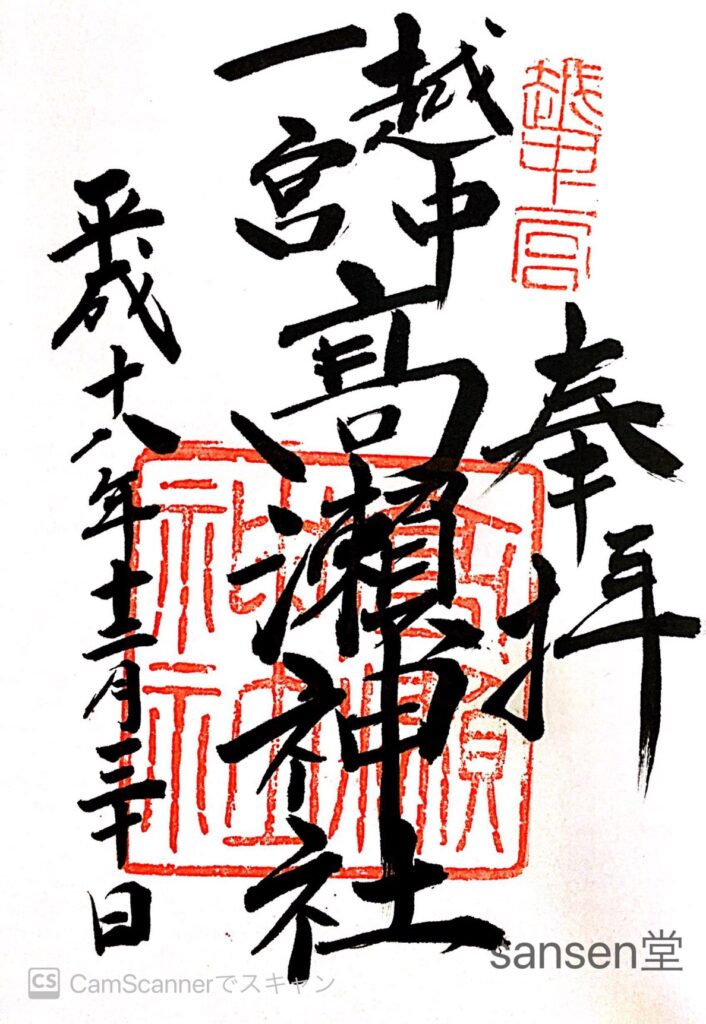 奉拝
越中
一宮
髙瀬神社
平成十八年十二月三十日
越中一宮
髙瀬神社
sansen堂
CS CamScannerでスキャン